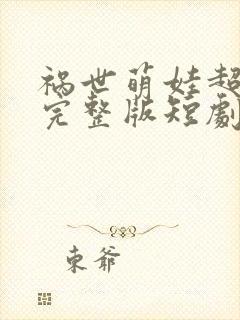 祸世萌娃超
完整版短劇
東爺